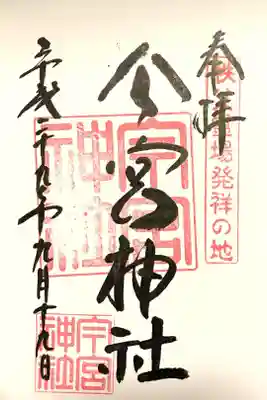 奉拝
霊場発祥の地
今宮神社
今宮神社
平成二十九年九月十九日
今宮神社